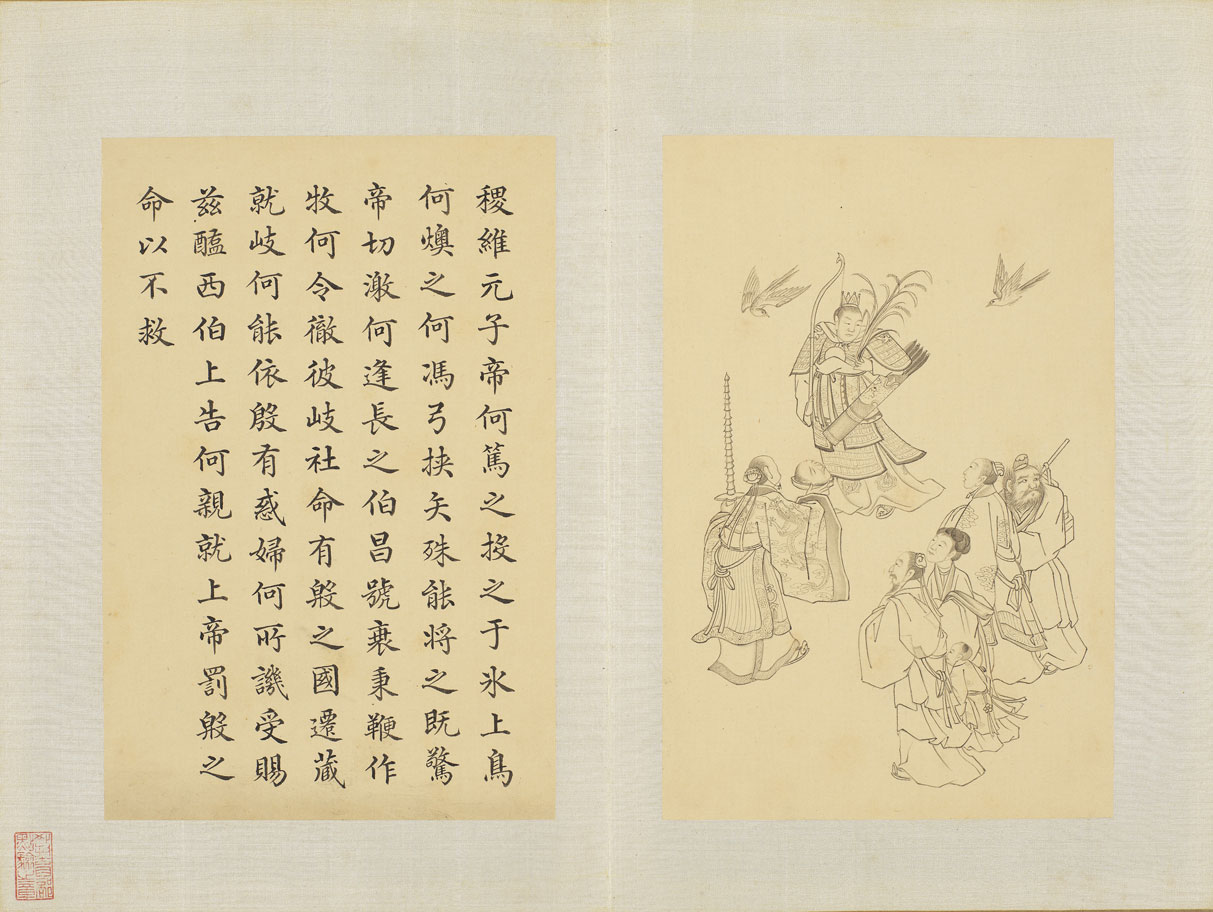 稷維元子帝何篤之投之于氷上鳥
何燠之何馮弓挟矢殊能将之既驚
帝切激何逢長之伯昌號衰秉鞭作
牧何令徹彼岐社命有殷之國遷藏
就岐何能依殷有惑婦何所譏受賜
兹醢西伯上告何親就上帝罰殷之
命以不救